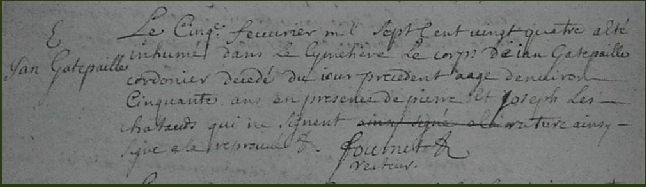 E
Jan Gatepaille
Le Cinq.e feuurier mil Sept Cent vingt quatre a esté
inhumé dans le Cymetiere Le corps de ian Gatepaille
cordonier decedé du iour precedent aage denuiron
Cinquante ans en presence de pierre et Joseph Les
qui ne signent ainsy signe a la ainsy
signé a la &.
recteur.